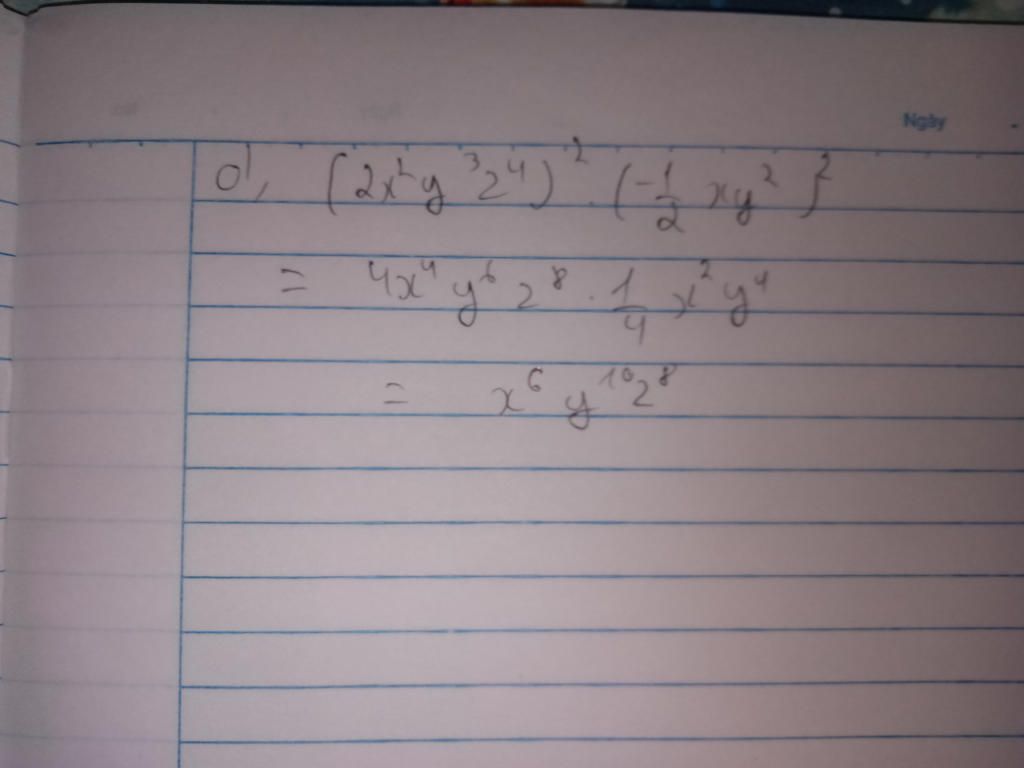 Ngày
d, (2x²y³z⁴)² . (-1/2 xy²)²
= 4x⁴y⁶z⁸ . 1/4 x²y⁴
= x⁶y¹⁰z⁸